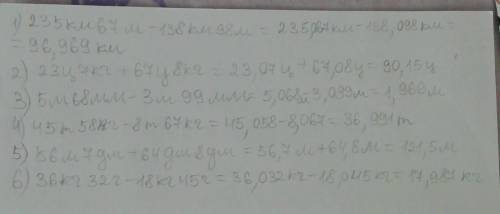 1) 235км 67м - 138км 98м = 235,067км - 138,098км =
= 96,969 км
2) 23ц 7кг + 67ц 8кг = 23,07ц + 67,08ц = 90,15ц
3) 5м 68мм - 3м 99мм = 5,068м - 3,099м = 1,969м
4) 45т 58кг - 8т 67кг = 45,058 - 8,067 = 36,991т
5) 56м 7дм + 64дм 8дм = 56,7м + 64,8м = 121,5м
6) 36кг 32г - 18кг 45г = 36,032кг - 18,045кг = 17,987кг